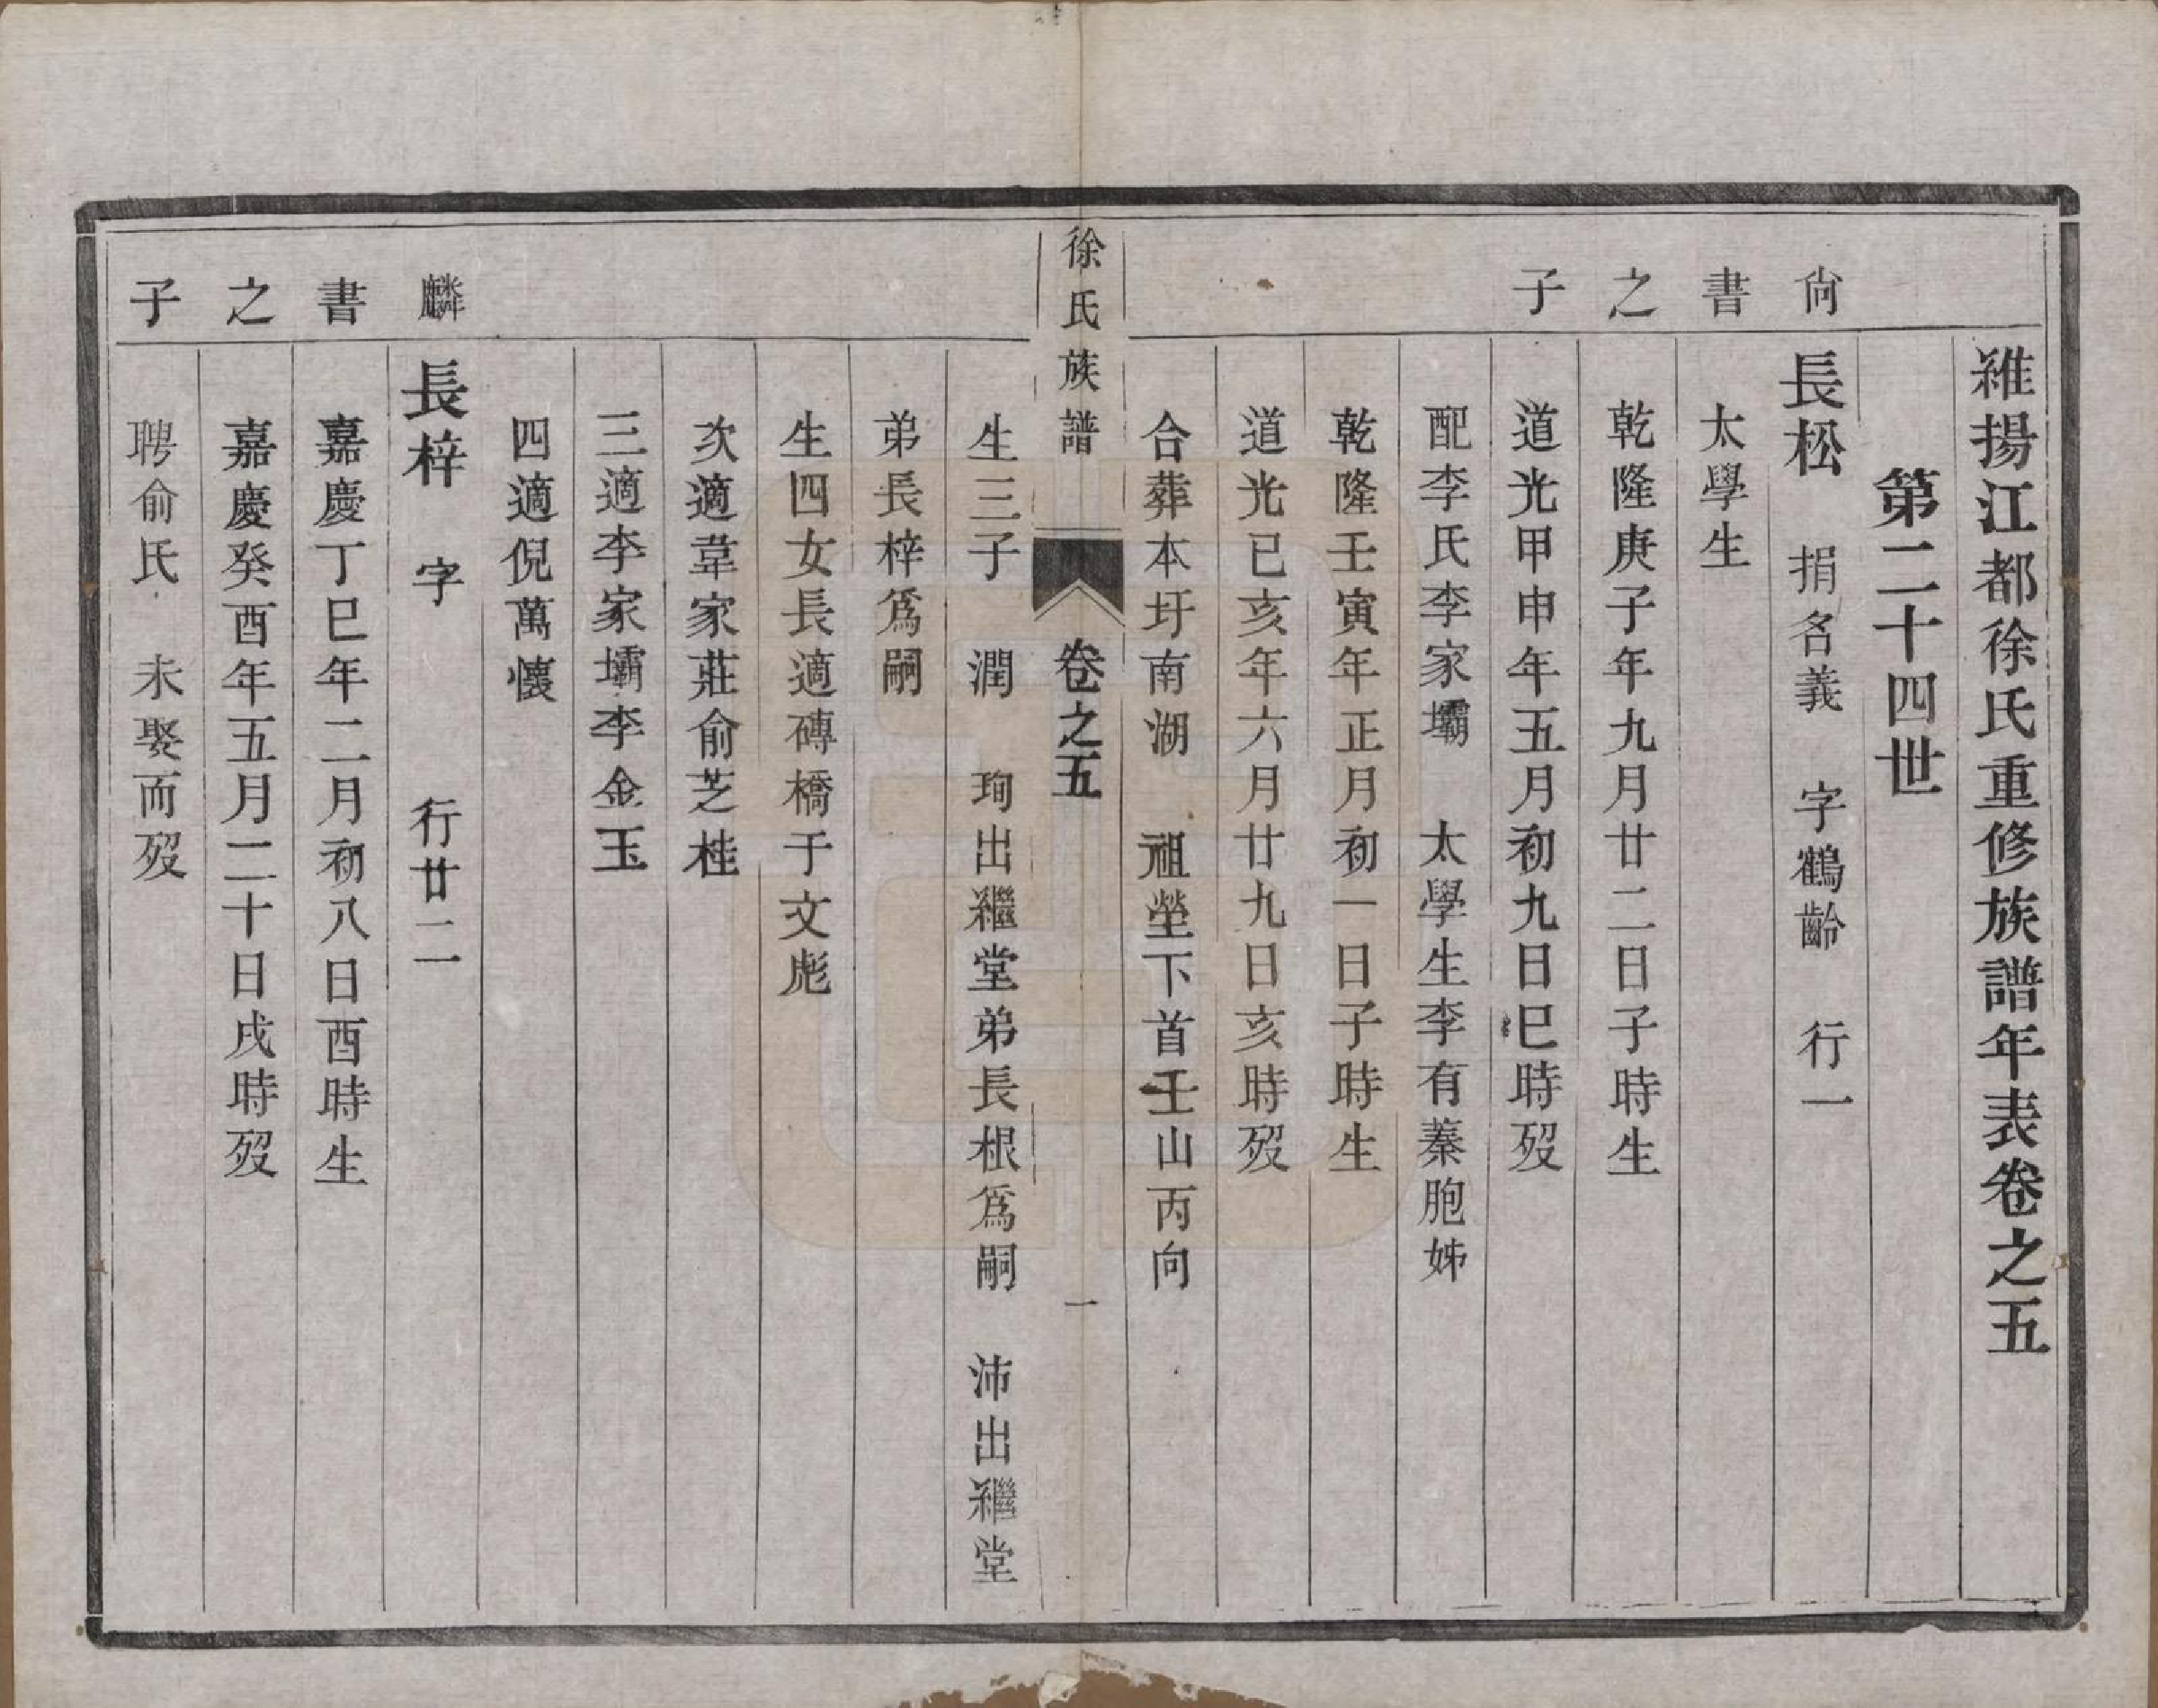 維揚江都徐氏重修族譜年表卷之五
第二十四世
尙書之子
長松 捐名義 字鶴齡 行一
太學生
乾隆庚子年九月廿二日子時生
道光甲申年五月初九日巳時歿
配李氏李家壩 太學生李有蓁胞姊
乾隆壬寅年正月初一日子時生
道光已亥年六月廿九日亥時歿
合葬本圩南湖 祖塋下首壬山丙向
徐氏族譜 卷之五 一
生三子 潤 珣出繼堂弟長根爲嗣 沛出繼堂
弟長梓爲嗣
生四女長適磚橋于文彪
次適葦家莊俞芝桂
三適李家壩李金玉
四適倪萬懷
麟書之子
長梓 字 行廿二
嘉慶丁巳年二月初八日酉時生
嘉慶癸酉年五月二十日戌時歿
聘俞氏 未娶而歿